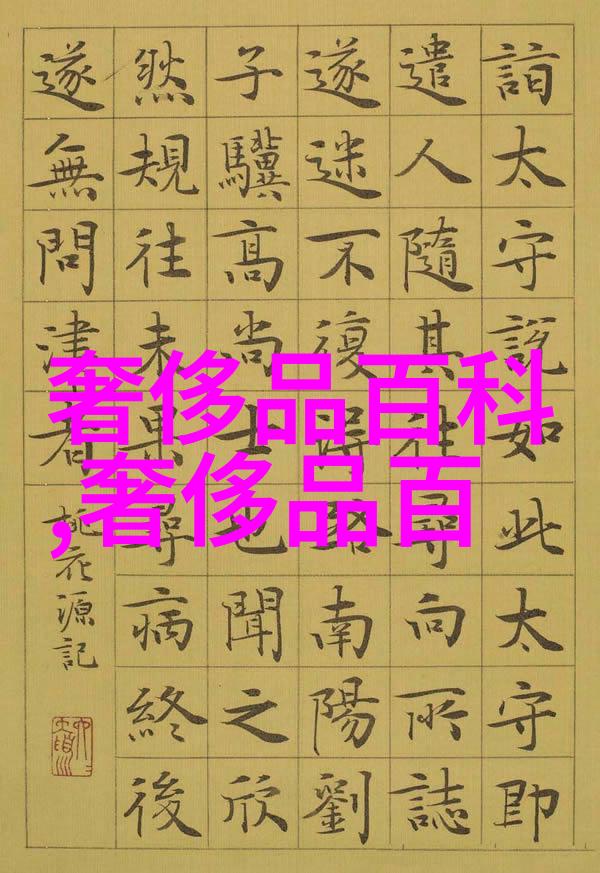 詣太守說如此太守即
遣人隨其往尋向所誌
遂迷不復得路南陽劉
子驥高尚士也聞之欣
然規往未果尋病終後
遂無問津者
桃花源記
奢侈品百科
,奢侈品百